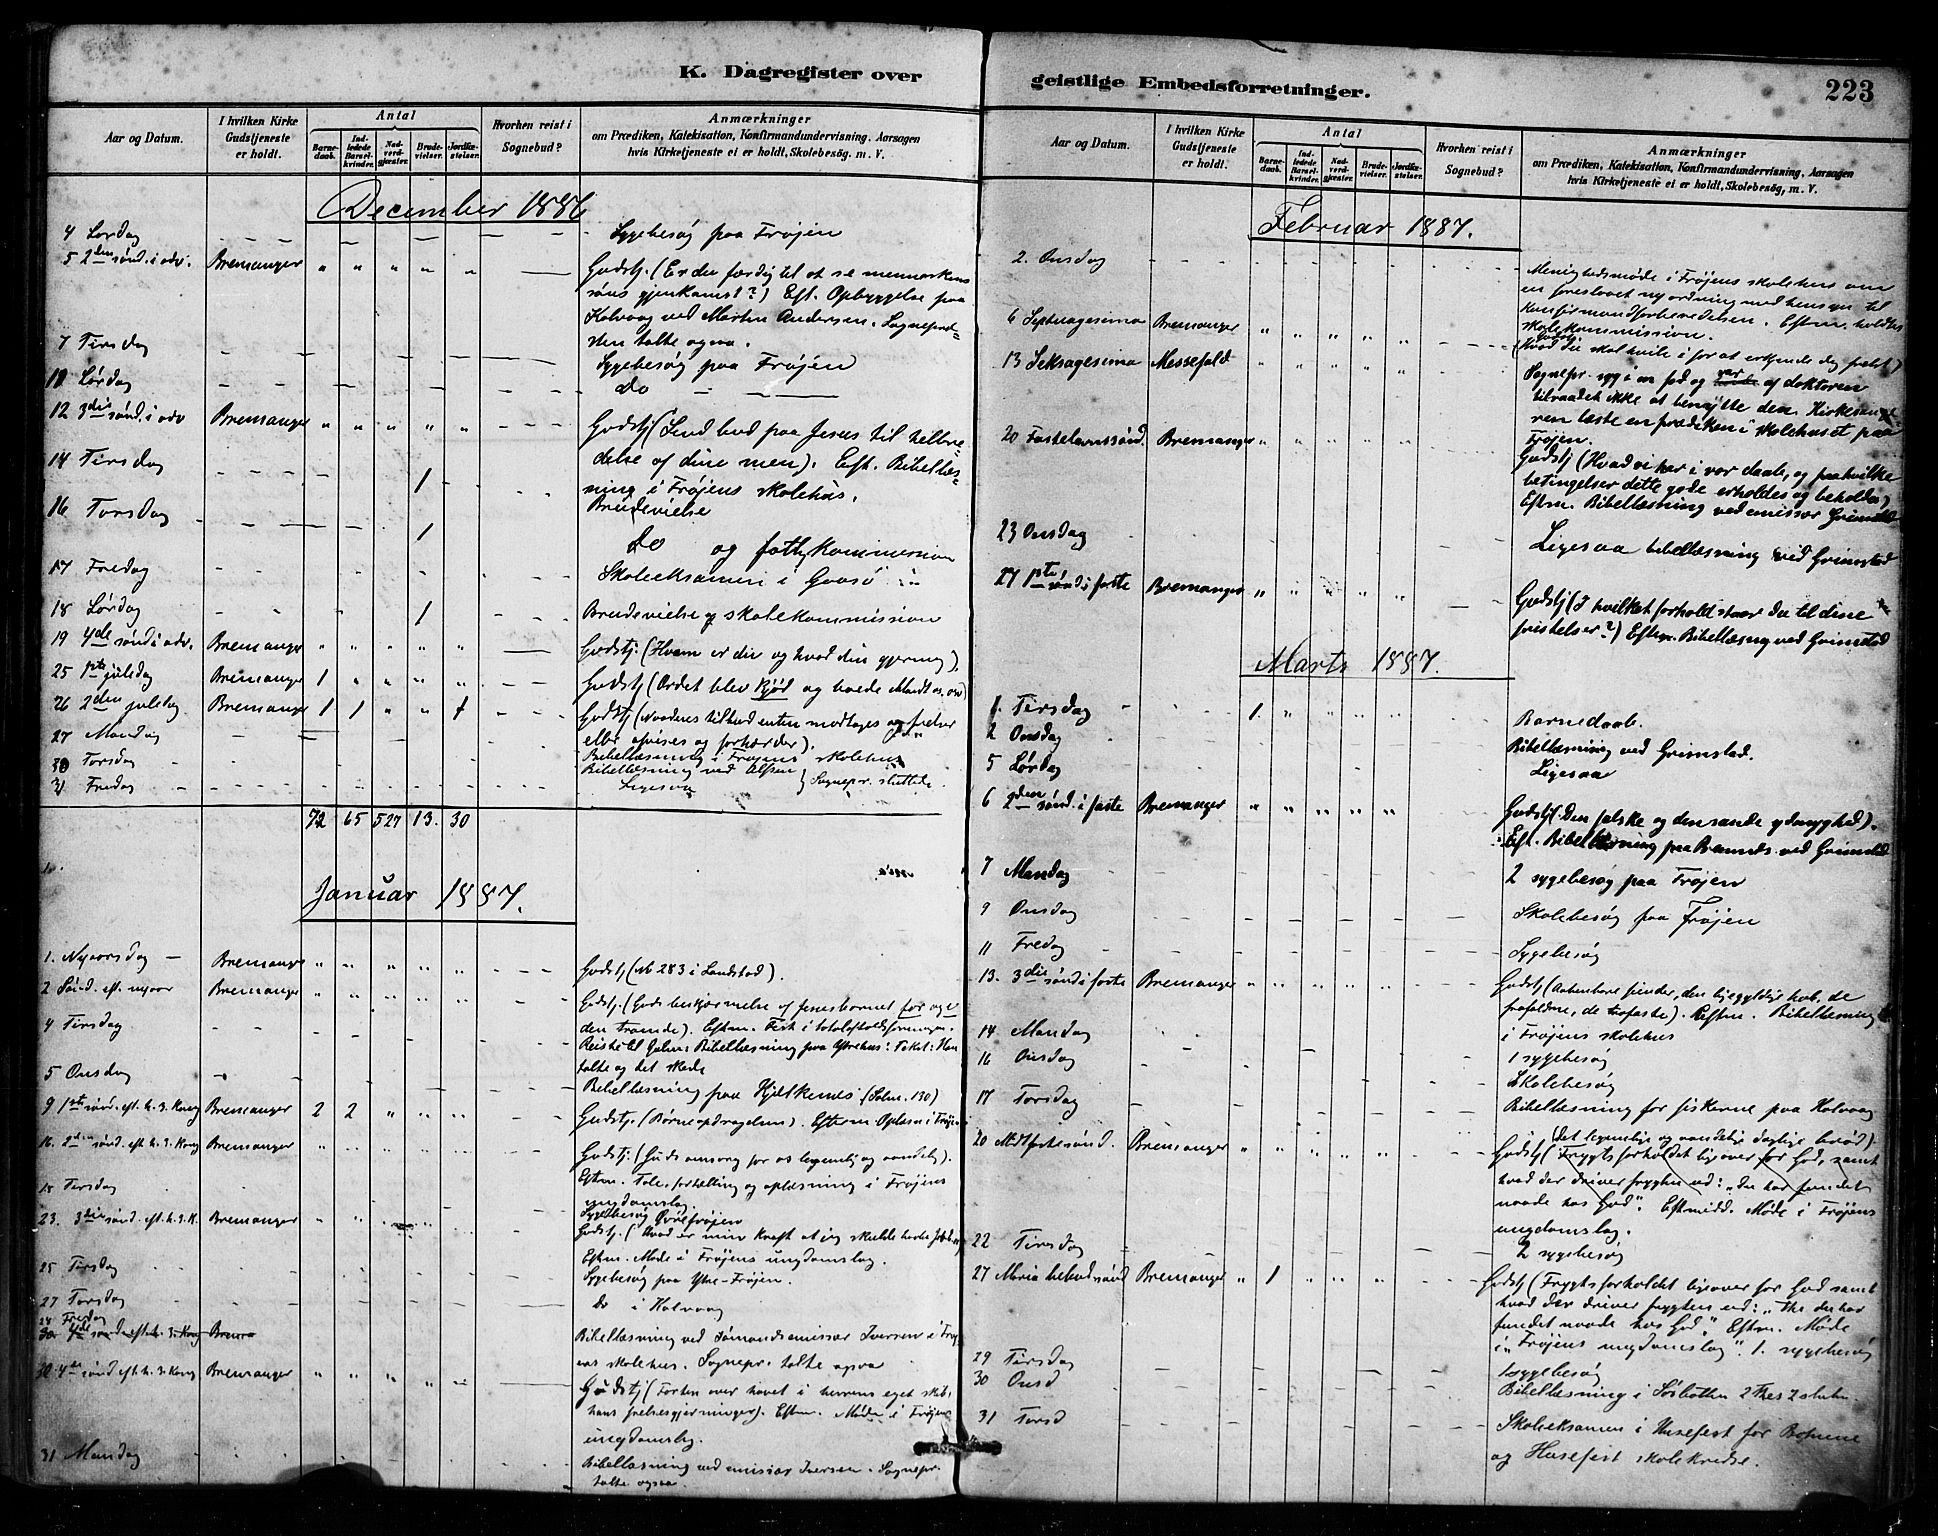 K. Dagregister over
geistlige Embedsforretninger.
223
Aar og Datum.
I hvilken Kirke Gudstjeneste er holdt.
Antal
Barnedaab.
Indledede Barselkvinder.
Nadverdgjæster.
Brudevielser.
Jordfæstelser.
Hvorhen reist i Sognebud?
Anmærkninger
om Prædiken, Katekisation, Konfirmandundervisning, Aarsagen
hvis Kirketjeneste ei er holdt, Skolebesøg. m. V.
December 1886
4 Lørdag Sygebesøg paa Frøjen
5 2den sønd. i adv. Bremanger Gudstj. (Er du færdig til at se menneskens
søns gjenkomst?) Eft. Opbyggelse paa
Kalvaag ved Martin Andersen. Sognepræ-
sten talte ogsaa.
7 Tirsdag Sygebesøg paa Frøjen
Lørdag do
12 3die sønd. i adv Bremanger Gudstj (Send bud paa Jesus til helbre-
delse af dine men). Eft. Bibellæs-
ning i Frøjens skolehus.
14 Tirsdag 1 Brudevielse
16 Torsdag 1 Do og fattigkommission
17 Fredag Skoleeksamen i
18 Lørdag 1 Brudevielse og skolekommission
19 4de sønd i adv. Bremanger Gudstj. (Hvem er du og hvad din gjerning).
25 1ste juledag Bremanger 1 Gudstj (Ordet blev kjød og boede blandt os. osv)
26 2den juledag Bremanger 1 1 Gudstj (Naadens tilbud enten modtages og frelser
eller afvises og forhærder).
27 Mandag Bibellæsning i Frøjens skolehus
30 Torsdag Bibellæsning ved
31 Fredag Ligesaa } Sognepr. sluttede.
72 65 527 13. 30
Januar 1887.
1. Nyaarsdag Bremanger Gudstj (No 283 i Landstad).
2 Sønd. eft. nyaar Bremanger Gudstj. (Guds beskjærmelse af Jesusbarnet før og
den troende). Eftm. Fest i totalafholdsforeningen.
4 Tirsdag Reiste til Bibellæsning paa Ytrehus: Tekst: Han
talte og det skede
5 Onsdag Bibellæsning paa Hjelkenes (Salm. 130)
9 1ste sønd. eft. h. 3. Kong Bremanger 2 2 Gudstj. (Børneopdragelsen). Eftm Oplæsn i Frøjen
16. 2den sønd. eft h. 3. Kong Bremanger Gudstj. (Guds omsorg for os legemlig og aandelig).
Eftm. Tale, fortælling og oplæsning i Frøjens
ungdomslag.
18 Tirsdag Sygebesøg Øvrefrøjen
23. 3die sønd. eft. h. 3. K. Bremanger Gudstj. (Hvad er min kraft at jeg skulde
Eftm. Møde i Frøjens ungdomslag.
25 Tirsdag Sygebesøg paa Ytre-Frøjen.
27 Torsdag do i Kalvaag
28 Fredag Bibellæsning ved Sømandsemissær Iversen i Frøj
ens skolehus. Sognepr. talte ogsaa
30 4de sønd eft. h. 3. Kong Bremanger Gudstj (Farten over havet i herrens eget skib,
hans frelsesgjerninger). Eftm. Møde i Frøjens
ungdomslag.
31 Mandag Bibellæsning ved emissær Iversen. Sognepr.
talte ogsaa.
Aar og Datum.
I hvilken Kirke Gudstjeneste er holdt.
Antal
Barnedaab.
Indledede Barselkvinder.
Nadverdgjæster.
Brudevielser.
Jordfæstelser.
Hvorhen reist i Sognebud?
Anmærkninger
om Prædiken, Katekisation, Konfirmandundervisning, Aarsagen
hvis Kirketjeneste ei er holdt, Skolebesøg, m. V.
Februar 1887.
2. Onsdag Menighedsmøde i Frøjens skolehus om
en foreslaaet ny ordning med hensyn til
Konfirmandforberedelsen. Eftm. holdtes
skolekommission.
6 Septuagesima Bremanger Gudstj (Hvad du skal hvile i for at erkjende dig frelst)
13 Seksagesima Messefald Sognepr. syg i en fod og var af doktoren
tilraadet ikke at benytte den. Kirkesange-
ren læste en prædiken i skolehuset paa
Frøjen.
20 Fastelavnssønd. Bremanger Gudstj (Hvad vi har i vor daab, og paa hvilke
betingelser dette gode erholdes og beholdes)
Eftm. Bibellæsning ved emissær Grimstad
23 Onsdag Ligesaa bibellæsning ved Grimstad
27 1ste sønd i faste Bremanger Gudstj (I hvilket forhold staar du til dine
fristelser?) Eftm. Bibellæsng ved Grimstad
Marts 1887.
1. Tirsdag 1. Barnedaab.
2 Onsdag Bibellæsning ved Grimstad.
5 Lørdag Ligesaa
6 2den sønd. i faste Bremanger Gudstj (Den falske og den sande ydmyghed).
Eft. Bibellæsning paa ved Grimstad
7 Mandag 2 sygebesøg paa Frøjen
9 Onsdag Skolebesøg paa Frøjen
11 Fredag Sygebesøg
13. 3die sønd i faste Bremanger Gudstj (Aabenbare fiender, den ligegyldige hob, de
frafaldne, de trofaste). Eftm. Bibellæsning
i Frøjens skolehus
14 Mandag 1 sygebesøg
16 Onsdag Skolebesøg
17 Torsdag Bibellæsning for fiskerne paa Kalvaag
20 Midtfastesønd. Bremanger (det legemlige og aandelige daglige brød)
Gudstj (Frygtsforholdet ligeover for Gud, samt
hvad der driver frygten ud: "Du har fundet
naade hos Gud". Eftmidd. Møde i Frøjens
ungdomslag.
22 Tirsdag 2 sygebesøg
27 Maria bebud. sønd Bremanger 1 Gudstj (Frygtsforholdet ligeover for Gud samt
hvad der driver frygten ud: "Thi du har
fundet naade hos Gud". Eftm. Møde
i "Frøjens ungdomslag". 1. sygebesøg
29 Tirsdag 1 sygebesøg
30 Onsd Bibellæsning i Sørbotten 2 Thes 2
31 Torsd Skoleeksamen i Husefest for
og Husefest skolekredse.